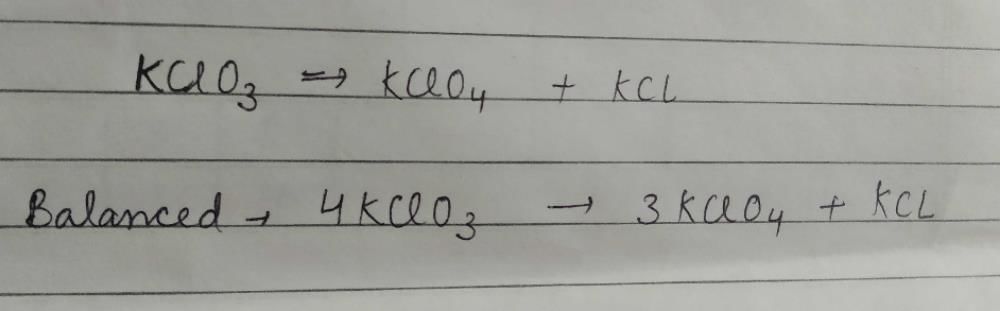 KClO₃ ⇒ KClO₄ + KCL
Balanced → 4KClO₃ → 3KClO₄ + KCL